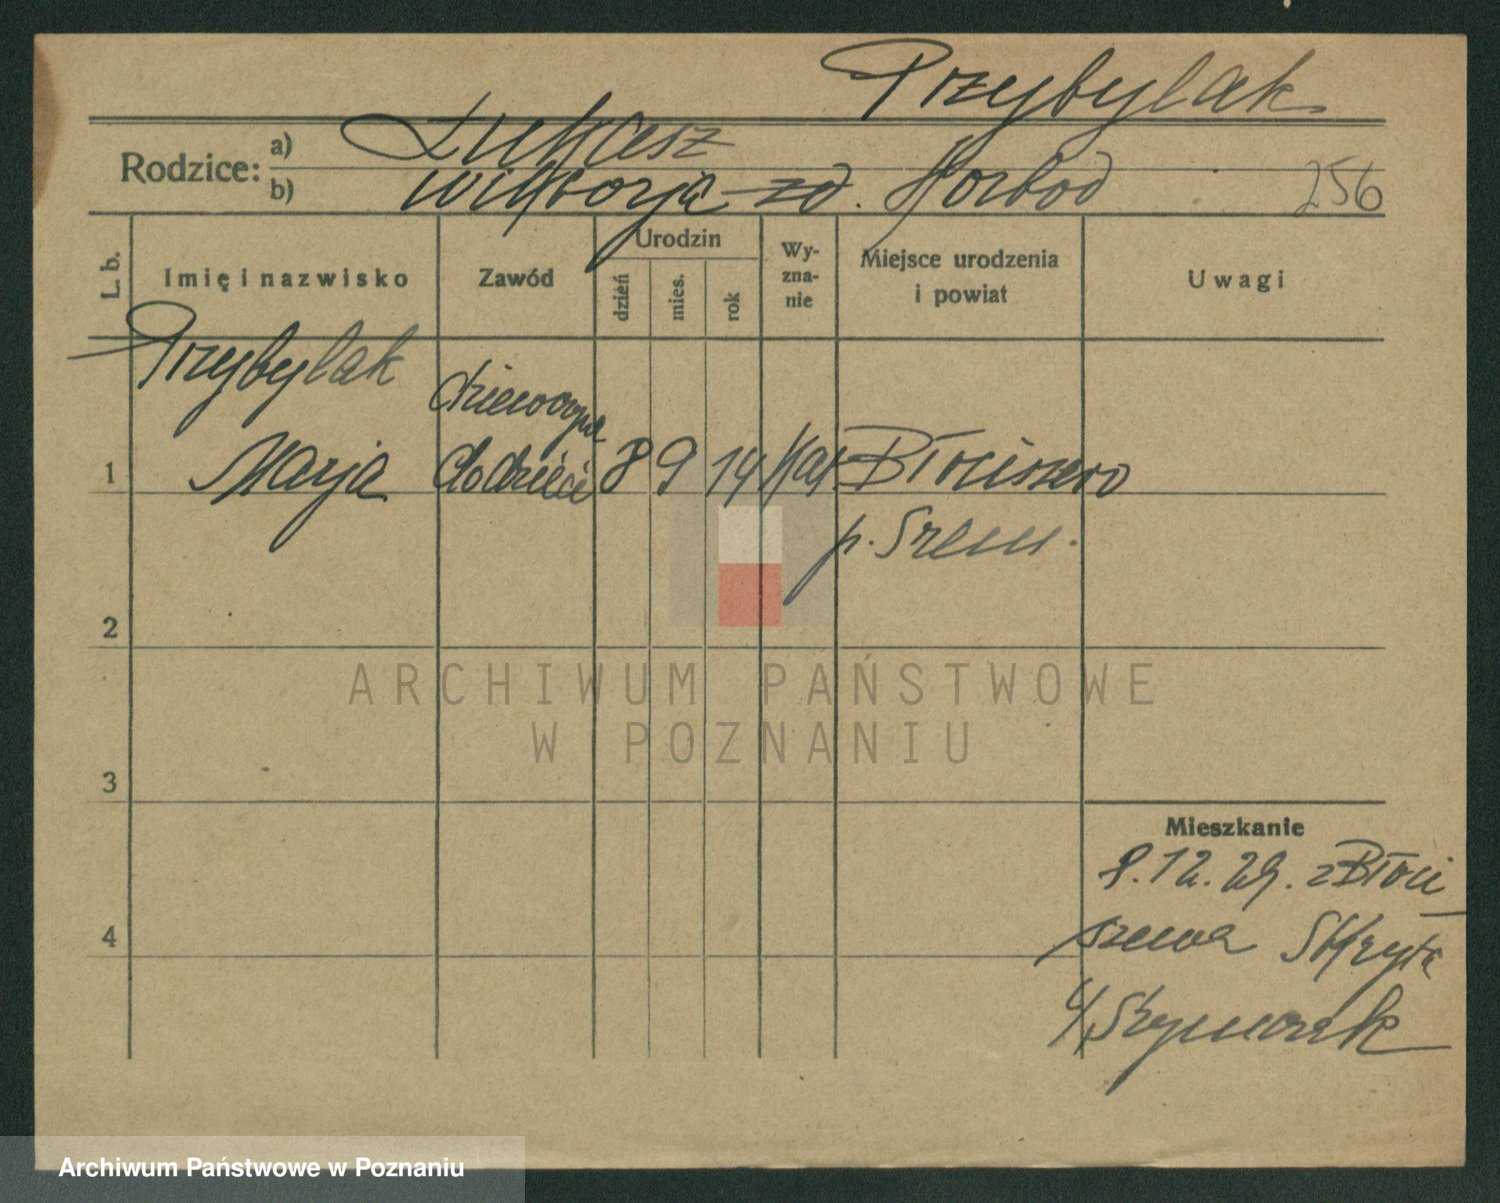 Przybylak
Rodzice: a) Łukasz
b) Wiktorja zd. Horbod 256
L. b. Imię i nazwisko Zawód Urodzin dzień mies. rok Wyznanie Miejsce urodzenia i powiat Uwagi
Przybylak dziewczyna
1 Marja do dzieci 8 9 14 kat Błociszewo
p. Srem.
2
ARCHIWUM PAŃSTWOWE
W POZNANIU
3
Mieszkanie
8.12.29. z Błoci
4 szewa
u/Szymorek
Archiwum Państwowe w Poznaniu